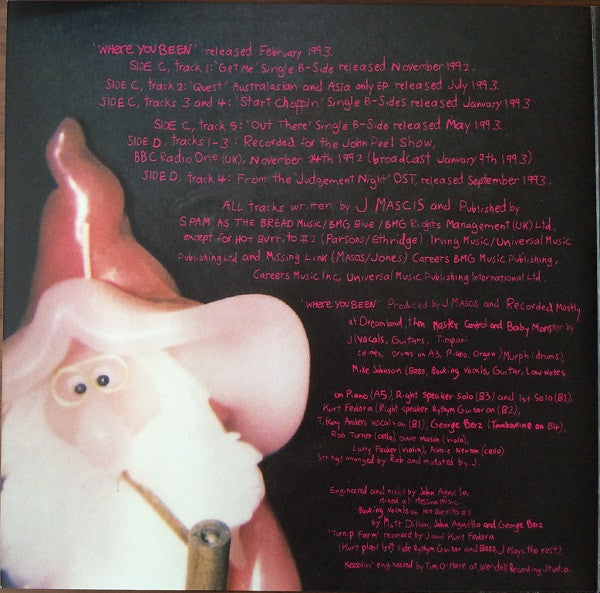 'WHERE YOU BEEN' released February 1993.
SIDE C, track 1: 'Get Me' Single B-Side released November 1992.
SIDE C, track 2: 'Quest' Australasian and Asia only EP released July 1993.
SIDE C, tracks 3 and 4: 'Start Choppin' Single B-Sides released January 1993
SIDE C, track 5: 'Out There' Single B-Side released May 1993.
SIDE D, tracks 1-3: Recorded for the John Peel Show,
BBC Radio One (UK), November 24th 1992 (broadcast January 9th 1993)
SIDE D, track 4: From the 'Judgement Night' OST, released September 1993.
ALL tracks written by J MASCIS and Published by
SPAM AS THE BREAD Music/BMG Blue/BMG Rights Management (UK) Ltd.
except for HOT BURRITO #2 (Parsons/Ethridge) Irving Music/Universal Music
Publishing Ltd and Missing Link (Mascis/Jones) Careers BMG Music Publishing,
Careers Music Inc, Universal Music Publishing International Ltd.
'WHERE YOU BEEN' Produced by J MASCIS and Recorded Mostly
at Dreamland, then Master Control and Baby Monster by
J (Vocals, Guitars, Timpani
Chimes, Drums on A3, Piano, Organ) Murph (drums),
Mike Johnson (Bass, Backing Vocals, Guitar, Low Notes
on Piano (A5), Right speaker solo (B3) and 1st Solo (B1),
Kurt Fedora (Right speaker Rythm Guitar on (B2),
Tiffany Anders vocals on (B1), George Berz (Tambourine on B4),
Rob Turner (cello), Dave Mason (viola),
Larry Packer (violin), Abbie Newton (cello)
Strings arranged by Rob and mutated by J.
Engineered and mixed by John Agnello,
mixed at Messina Music.
Backing vocals on HOT Burrito #2
by Matt Dillon, John Agnello and George Berz
'Turnip Farm' recorded by J and Kurt Fedora
(Kurt plays left side Rythm Guitar and Bass, J Plays the rest).
'Keeblin' engineered by Tim O'Hare at Wendell Recording Studio.